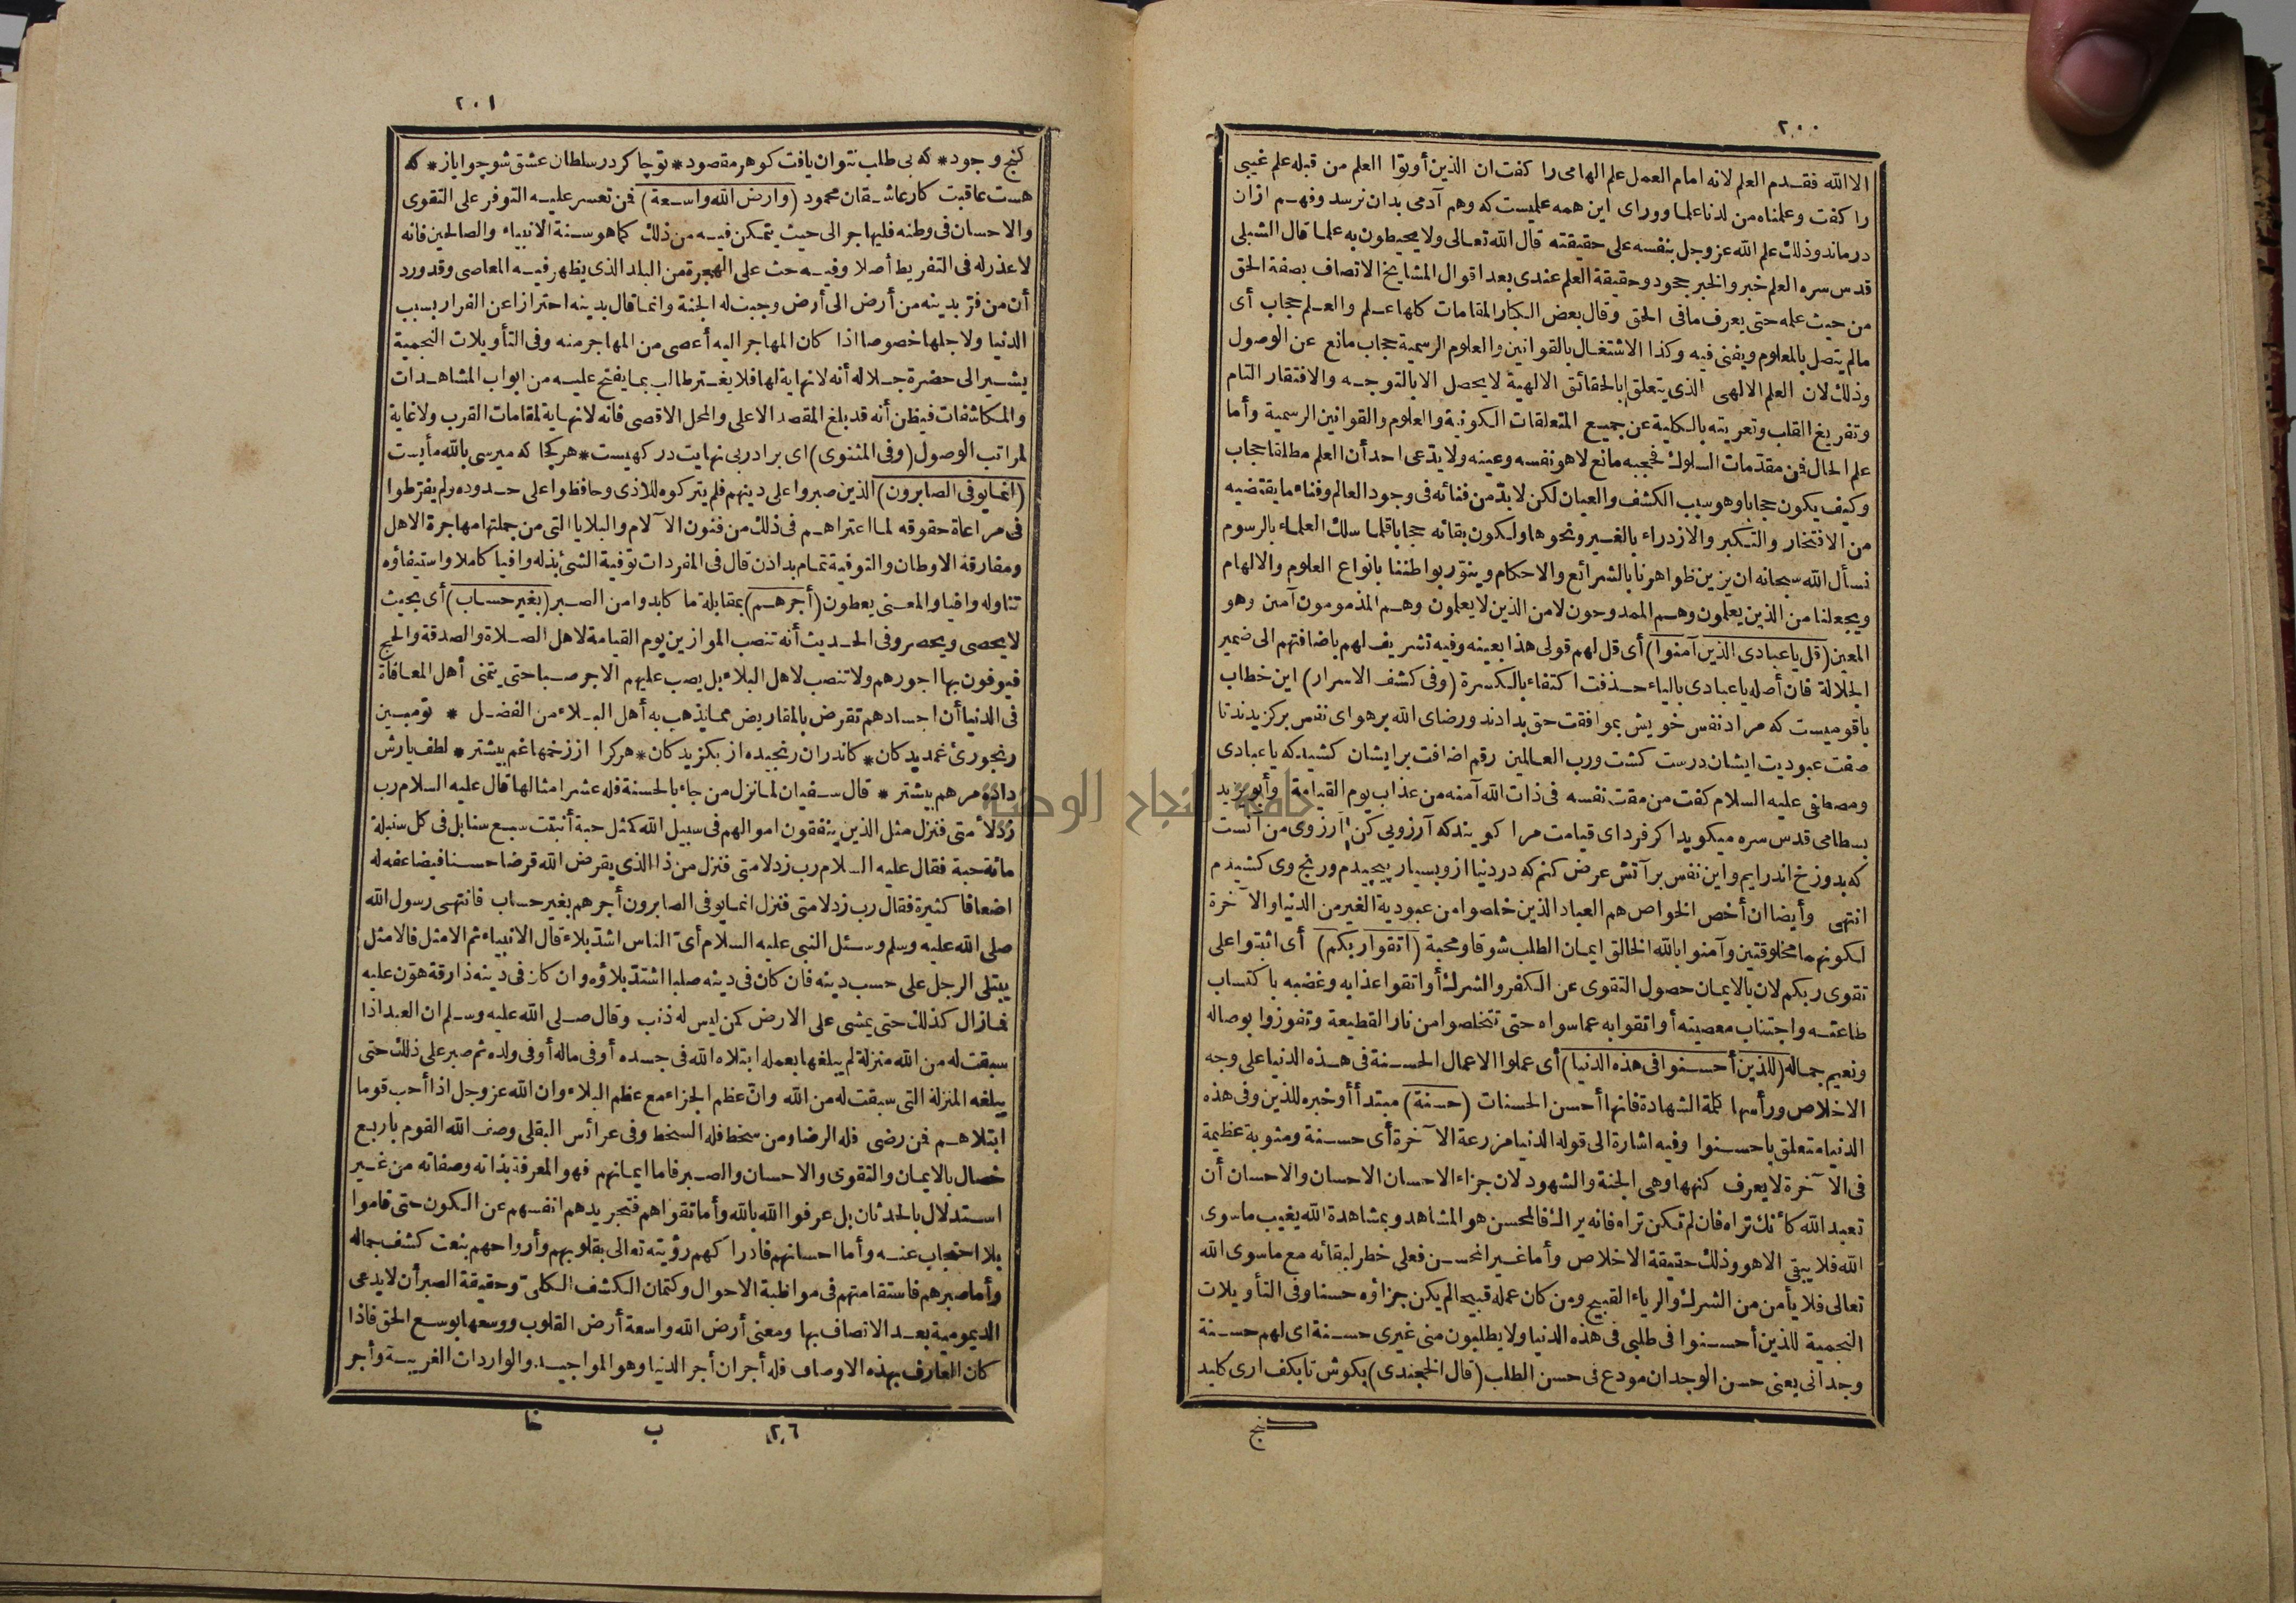 ٢٠٠
الا الله فقدم العلم لانه امام العمل علم الهامى را كفت ان الذين أوتوا العلم من قبله علم غيبى
را كفت وعلمناه من لدنا علما وورای اين همه علميست كه وهم آدمى بدان نرسد وفهم ازان
درماند وذلك علم الله عز وجل بنفسه على حقيقته قال الله تعالى ولا يحيطون به علما قال الشبلى
قدس سره العلم خبر والخبر جحود وحقيقة العلم عندى بعد اقوال المشايخ الاتصاف بصفة الحق
من حيث علمه حتى يعرف ما فى الحق وقال بعض الكبار المقامات كلها علم والعلم حجاب أى
مالم يتصل بالمعلوم ويفنى فيه وكذا الاشتغال بالقوانين والعلوم الرسمية حجاب مانع عن الوصول
وذلك لان العلم الالهى الذى يتعلق بالحقائق الالهية لا يحصل الا بالتوجه والافتقار التام
وتفريغ القلب وتعريته بالكلية عن جميع المتعلقات الكونية والعلوم والقوانين الرسمية وأما
علم الحال فمن مقدّمات السلوك فحجبه مانع لا هو نفسه وعينه ولا يدّعى احد أن العلم مطلقا حجاب
وكيف يكون حجابا وهو سبب الكشف والعيان لكن لا بدّ من فنائه فى وجود العالم وفناء ما يقتضيه
من الافتخار والتكبر والازدراء بالغير ونحوها ولكون بقائه حجابا قلما سلك العلماء بالرسوم
نسأل الله سبحانه ان يزين ظواهرنا بالشرائع والاحكام وينوّر بواطننا بانواع العلوم والالهام
ويجعلنا من الذين يعلمون وهم الممدوحون لا من الذين لا يعلمون وهم المذمومون آمين وهو
المعين (قل يا عبادى الذين آمنوا) أى قل لهم قولى هذا بعينه وفيه تشريف لهم باضافتهم الى ضمير
الجلالة فان أصله يا عبادى بالياء حذفت اكتفاء بالكسرة (وفى كشف الاسرار) اين خطاب
باقوميست كه مراد نفس خويش بموافقت حق بدادند ورضاى الله بر هواى نفس بركزيدند تا
صفت عبوديت ايشان درست كشت ورب العالمين رقم اضافت بر ايشان كشيد كه يا عبادى
ومصطفى عليه السلام كفت من مقت نفسه فى ذات الله آمنه من عذاب يوم القيامة وأبو يزيد
بسطامى قدس سره ميكويد اكر فرداى قيامت مرا كويند كه آرزويى كن آرزوى من آنست
كه بدوزخ اندر ايم واين نفس بر آتش عرض كنم كه در دنيا ازو بسيار پيچيدم ورنج وى كشيدم
انتهى وأيضا ان أخص الخواص هم العباد الذين خلصوا من عبودية الغير من الدنيا والآخرة
لكونهما مخلوقتين وآمنوا بالله الخالق ايمان الطلب شوقا ومحبة (اتقوا ربكم) أى اثبتوا على
تقوى ربكم لان بالايمان حصول التقوى عن الكفر والشرك أو اتقوا عذابه وغضبه باكتساب
طاعته واجتناب معصيته أو اتقوا به عما سواه حتى تتخلصوا من نار القطيعة وتفوزوا بوصاله
ونعيم جماله (للذين أحسنوا فى هذه الدنيا) أى عملوا الاعمال الحسنة فى هذه الدنيا على وجه
الاخلاص ورأسها كلمة الشهادة فانها أحسن الحسنات (حسنة) مبتدأ أو خبره للذين وفى هذه
الدنيا متعلق باحسنوا وفيه اشارة الى قوله الدنيا مزرعة الآخرة أى حسنة ومثوبة عظيمة
فى الآخرة لا يعرف كنهها وهى الجنة والشهود لان جزاء الاحسان الاحسان والاحسان أن
تعبد الله كأنك تراه فان لم تكن تراه فانه يراك فالمحسن هو المشاهد وبمشاهدة الله يغيب ما سوى
الله فلا يبقى الا هو وذلك حقيقة الاخلاص وأما غير المحسن فعلى خطر لبقائه مع ما سوى الله
تعالى فلا يأمن من الشرك والرياء القبيح ومن كان عمله قبيحا لم يكن جزاؤه حسنا وفى التأويلات
النجمية للذين أحسنوا فى طلبى فى هذه الدنيا ولا يطلبون منى غيرى حسنة اى لهم حسنة
وجدانى يعنى حسن الوجدان مودع فى حسن الطلب (قال الخجندى) بكوش تا بكف ارى كليد
كنج
٢٠١
كنج وجود * كه بى طلب نتوان يافت كوهر مقصود * تو چاكر در سلطان عشق شو چو اياز * كه
هست عاقبت كار عاشقان محمود (وارض الله واسعة) فمن تعسر عليه التوفر على التقوى
والاحسان فى وطنه فليهاجر الى حيث يتمكن فيه من ذلك كما هو سنة الانبياء والصالحين فانه
لا عذر له فى التفريط أصلا وفيه حث على الهجرة من البلد الذى يظهر فيه المعاصى وقد ورد
أن من فرّ بدينه من أرض الى أرض وجبت له الجنة وانما قال بدينه احترازا عن الفرار بسبب
الدنيا ولاجلها خصوصا اذا كان المهاجر اليه أعصى من المهاجر منه وفى التأويلات النجمية
يشير الى حضرة جلاله أنه لا نهاية لها فلا يغتر طالب بما يفتح عليه من ابواب المشاهدات
والمكاشفات فيظن أنه قد بلغ المقصد الاعلى والمحل الاقصى فانه لا نهاية لمقامات القرب ولا غاية
لمراتب الوصول (وفى المثنوى) اى برادر بى نهايت در كهيست * هر كجا كه ميرسى بالله مأيست
(انما يوفى الصابرون) الذين صبروا على دينهم فلم يتركوه للاذى وحافظوا على حدوده ولم يفرّطوا
فى مراعاة حقوقه لما اعتراهم فى ذلك من فنون الآلام والبلايا التى من جملتها مهاجرة الاهل
ومفارقة الاوطان والتوفية تمام بدادن قال فى المفردات توفية الشئ بذله وافيا كاملا واستيفاؤه
تناوله وافيا والمعنى يعطون (أجرهم) بمقابلة ما كابدوا من الصبر (بغير حساب) أى بحيث
لا يحصى ويحصر وفى الحديث أنه تنصب الموازين يوم القيامة لاهل الصلاة والصدقة والحج
فيوفون بها اجورهم ولا تنصب لاهل البلاء بل يصب عليهم الاجر صبا حتى يتمنى أهل المعافاة
فى الدنيا أن اجسادهم تقرض بالمقاريض مما يذهب به أهل البلاء من الفضل * تو مبين
رنجورئ غمديدكان * كاندران رنجيده از بكزيدكان * هر كرا از زخمها غم بيشتر * لطف يارش
داده مرهم بيشتر * قال سفيان لما نزل من جاء بالحسنة فله عشر امثالها قال عليه السلام رب
زد لأمتى فنزل مثل الذين ينفقون اموالهم فى سبيل الله كمثل حبة أنبتت سبع سنابل فى كل سنبلة
مائة حبة فقال عليه السلام رب زد لامتى فنزل من ذا الذى يقرض الله قرضا حسنا فيضاعفه له
اضعافا كثيرة فقال رب زد لامتى فنزل انما يوفى الصابرون أجرهم بغير حساب فانتهى رسول الله
صلى الله عليه وسلم وسئل النبى عليه السلام أىّ الناس اشدّ بلاء قال الانبياء ثم الامثل فالامثل
يبتلى الرجل على حسب دينه فان كان فى دينه صلبا اشتدّ بلاؤه وان كان فى دينه ذا رقة هوّن عليه
فما زال كذلك حتى يمشى على الارض كمن ليس له ذنب وقال صلى الله عليه وسلم ان العبد اذا
سبقت له من الله منزلة لم يبلغها بعمله ابتلاه الله فى جسده أو فى ماله أو فى ولده ثم صبر على ذلك حتى
يبلغه المنزلة التى سبقت له من الله وانّ عظم الجزاء مع عظم البلاء وان الله عز وجل اذا أحب قوما
ابتلاهم فمن رضى فله الرضا ومن سخط فله السخط وفى عرائس البقلى وصف الله القوم باربع
خصال بالايمان والتقوى والاحسان والصبر فاما ايمانهم فهو المعرفة بذاته وصفاته من غير
استدلال بالحدثان بل عرفوا الله بالله وأما تقواهم فتجريدهم انفسهم عن الكون حتى قاموا
بلا احتجاب عنه وأما احسانهم فادراكهم رؤيته تعالى بقلوبهم وأرواحهم بنعت كشف جماله
وأما صبرهم فاستقامتهم فى مواظبة الاحوال وكتمان الكشف الكلىّ وحقيقة الصبر أن لا يدعى
الديمومية بعد الاتصاف بها ومعنى أرض الله واسعة أرض القلوب ووسعها بوسع الحق فاذا
كان العارف بهذه الاوصاف فله أجران أجر الدنيا وهو المواجيد والواردات الغريبة وأجر
٢٦ ب خا
جامعة النجاح الوطنية